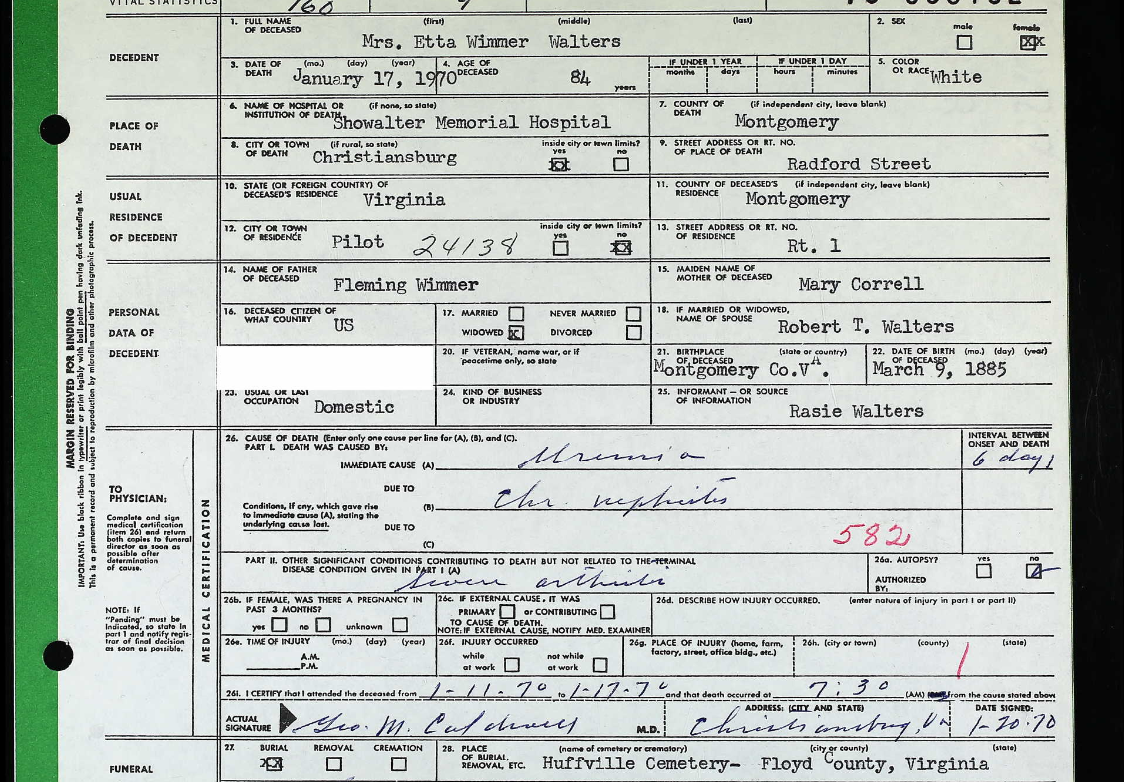 VITAL STATISTICS 160 9
1. FULL NAME OF DECEASED (first) (middle) (last) Mrs. Etta Wimmer Walters
2. SEX male female XX
DECEDENT
3. DATE OF DEATH (mo.) (day) (year) January 17, 1970
4. AGE OF DECEASED 84 years
IF UNDER 1 YEAR months days
IF UNDER 1 DAY hours minutes
5. COLOR OR RACE White
PLACE OF DEATH
6. NAME OF HOSPITAL OR INSTITUTION OF DEATH (if none, so state) Showalter Memorial Hospital
7. COUNTY OF DEATH (if independent city, leave blank) Montgomery
8. CITY OR TOWN OF DEATH (if rural, so state) Christiansburg inside city or town limits? yes XX no
9. STREET ADDRESS OR RT. NO. OF PLACE OF DEATH Radford Street
USUAL RESIDENCE OF DECEDENT
10. STATE (OR FOREIGN COUNTRY) OF DECEASED'S RESIDENCE Virginia
11. COUNTY OF DECEASED'S RESIDENCE (if independent city, leave blank) Montgomery
12. CITY OR TOWN OF RESIDENCE Pilot 24138 inside city or town limits? yes no XX
13. STREET ADDRESS OR RT. NO. OF RESIDENCE Rt. 1
PERSONAL DATA OF DECEDENT
14. NAME OF FATHER OF DECEASED Fleming Wimmer
15. MAIDEN NAME OF MOTHER OF DECEASED Mary Correll
16. DECEASED CITIZEN OF WHAT COUNTRY US
17. MARRIED NEVER MARRIED WIDOWED X DIVORCED
18. IF MARRIED OR WIDOWED, NAME OF SPOUSE Robert T. Walters
20. IF VETERAN, name war, or if peacetime only, so state
21. BIRTHPLACE OF DECEASED (state or country) Montgomery Co.VA.
22. DATE OF BIRTH OF DECEASED (mo.) (day) (year) March 9, 1885
23. USUAL OR LAST OCCUPATION Domestic
24. KIND OF BUSINESS OR INDUSTRY
25. INFORMANT — OR SOURCE OF INFORMATION Rasie Walters
MARGIN RESERVED FOR BINDING
IMPORTANT: Use black ribbon in typewriter or print legibly with ball point pen having dark unfading ink.
This is a permanent record and subject to reproduction by microfilm and other photographic process.
TO PHYSICIAN:
Complete and sign medical certification (item 26) and return both copies to funeral director as soon as possible after determination of cause.
NOTE: If "Pending" must be indicated, so state in part 1 and notify registrar of final decision as soon as possible.
MEDICAL CERTIFICATION
26. CAUSE OF DEATH (Enter only one cause per line for (A), (B), and (C).
PART I. DEATH WAS CAUSED BY:
INTERVAL BETWEEN ONSET AND DEATH
IMMEDIATE CAUSE (A) Uremia 6 days
DUE TO
Conditions, if any, which gave rise to immediate cause (A), stating the underlying cause last.
(B) Chr. nephritis
DUE TO
(C)
582
PART II. OTHER SIGNIFICANT CONDITIONS CONTRIBUTING TO DEATH BUT NOT RELATED TO THE TERMINAL DISEASE CONDITION GIVEN IN PART I (A)
Severe arthritis
26a. AUTOPSY? yes no AUTHORIZED BY:
26b. IF FEMALE, WAS THERE A PREGNANCY IN PAST 3 MONTHS? yes no unknown
26c. IF EXTERNAL CAUSE, IT WAS PRIMARY or CONTRIBUTING TO CAUSE OF DEATH.
NOTE: IF EXTERNAL CAUSE, NOTIFY MED. EXAMINER
26d. DESCRIBE HOW INJURY OCCURRED. (enter nature of injury in part I or part II)
26e. TIME OF INJURY (mo.) (day) (year) A.M. P.M.
26f. INJURY OCCURRED while at work not while at work
26g. PLACE OF INJURY (home, farm, factory, street, office bldg., etc.)
26h. (city or town) (county) (state)
26i. I CERTIFY that I attended the deceased from 1-11-70 to 1-17-70 and that death occurred at 7:30 (AM) from the cause stated above
ACTUAL SIGNATURE Geo. M. Caldwell M.D.
ADDRESS: (CITY AND STATE) Christiansburg, Va
DATE SIGNED: 1-20-70
FUNERAL
27. BURIAL XX REMOVAL CREMATION
28. PLACE OF BURIAL, REMOVAL, ETC. (name of cemetery or crematory) (city or county) (state) Huffville Cemetery- Floyd County, Virginia